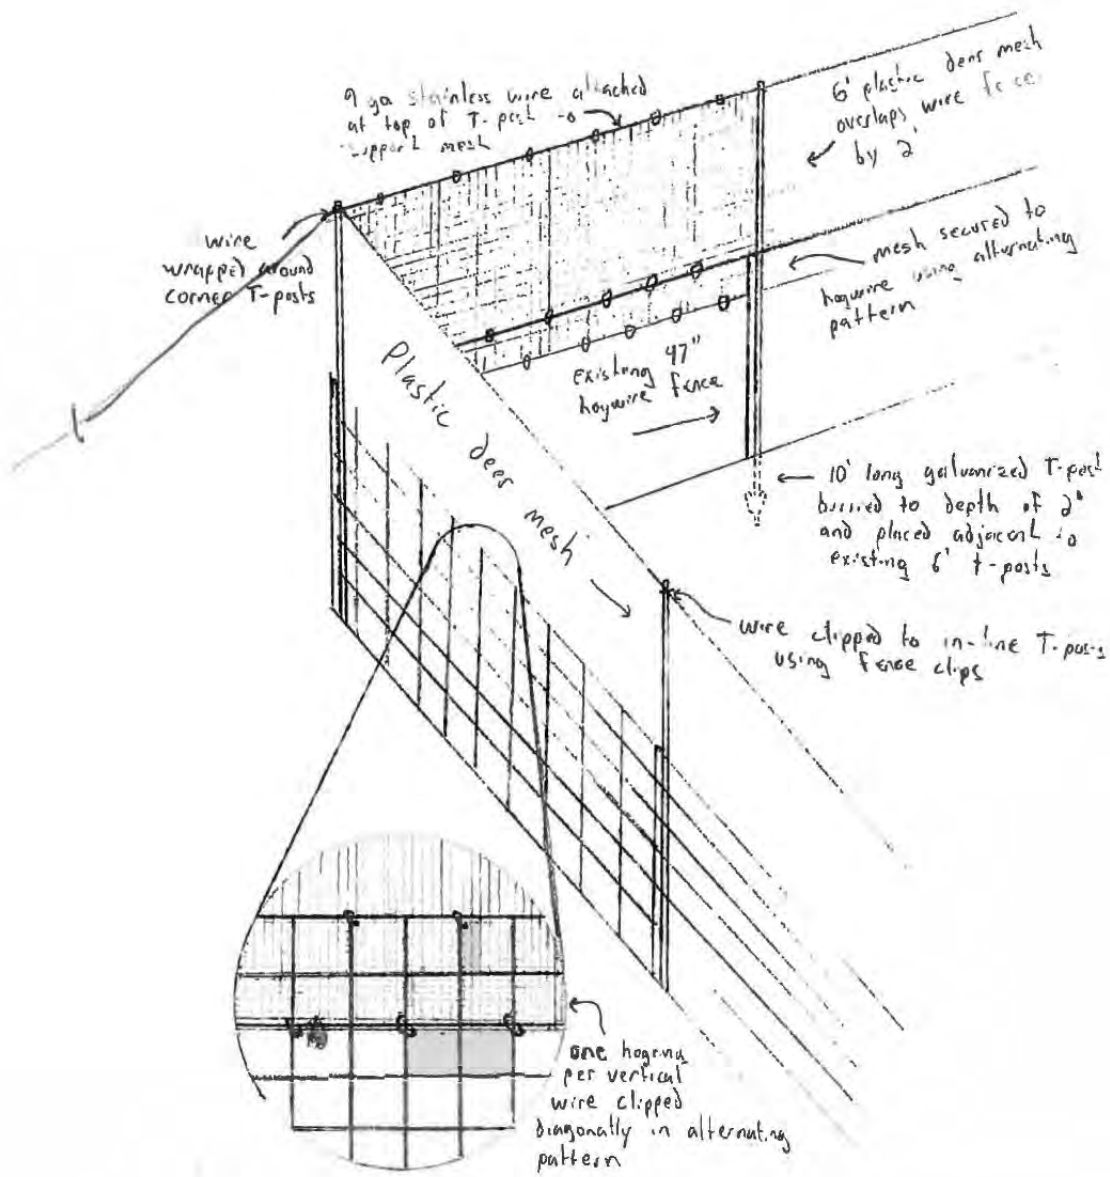 9 ga stainless wire attached
at top of T-post to
support mesh
6' plastic deer mesh
overlaps wire fence
by 2'
wire
wrapped around
corner T-posts
mesh secured to
hogwire using alternating
pattern
Plastic deer mesh
existing 47"
hogwire fence
10' long galvanized T-post
burried to depth of 2'
and placed adjacent to
existing 6' t-posts
wire clipped to in-line T-posts
using fence clips
one hogring
per vertical
wire clipped
diagonally in alternating
pattern